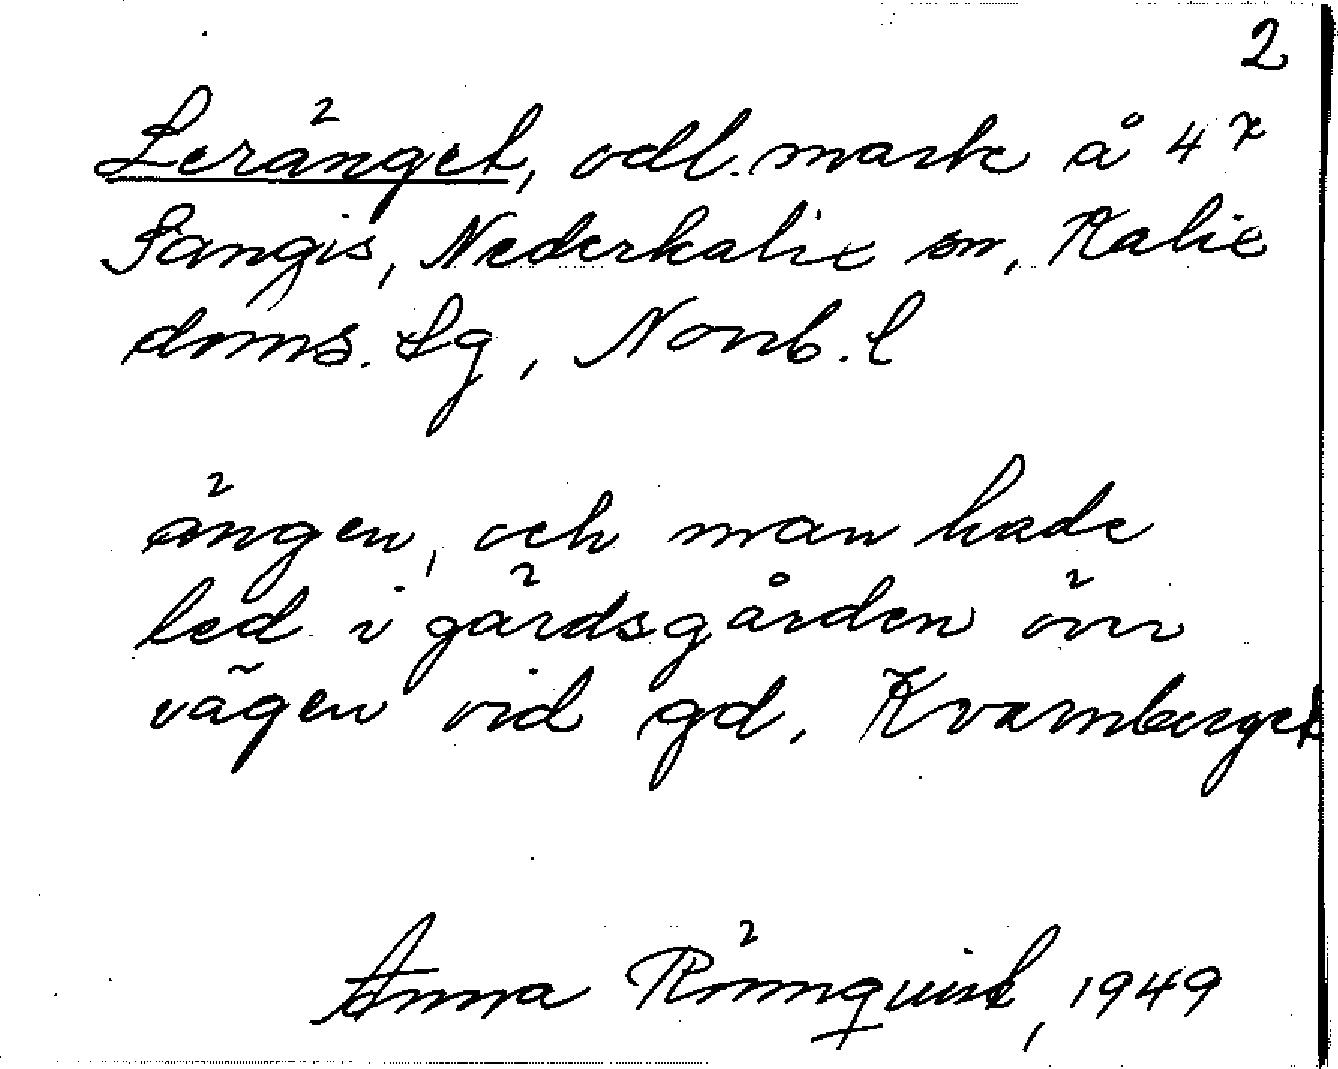 2
Leränget, odl. mark å 4 ͬ
Sangis, Nederkalix sn, Kalix
doms. Lg, Norrb. l
ängen, och man hade
led i gärdsgården över
vägen vid gd. Kvarnberget
Anna Rönnquist, 1949